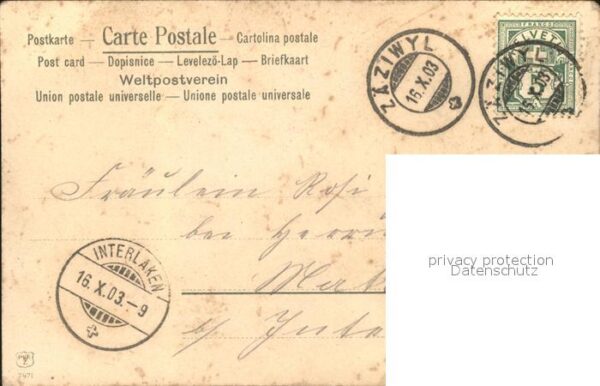 Postkarte — Carte Postale — Cartolina postale
Post card — Dopisnice — Levelező-Lap — Briefkaart
Weltpostverein
Union postale universelle — Unione postale universale
ZÄZIWYL
16.X.03
HELVETIA
FRANCO
ZÄZIWYL
16.X.03
Fräulein Rosi
bei Herrn
privacy protection
Datenschutz
INTERLAKEN
16.X.03.–9
Matt
b/ Inte
7471